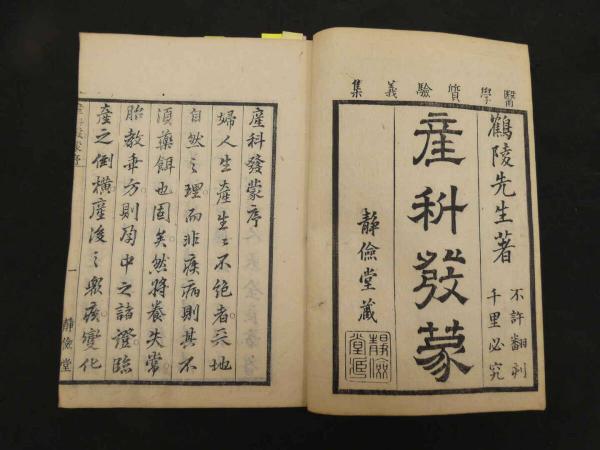 醫學質驗義集
鶴陵先生著
不許翻刻
千里必究
産科發蒙
靜儉堂藏
靜儉
堂印
産科發蒙序
婦人生産生生不絶者天地
自然之理而非疾病則其不
須藥餌也固矣然將養失常
胎教乖方則孕中之諸證臨
産之倒横産後之衆疾變化
一
靜儉堂